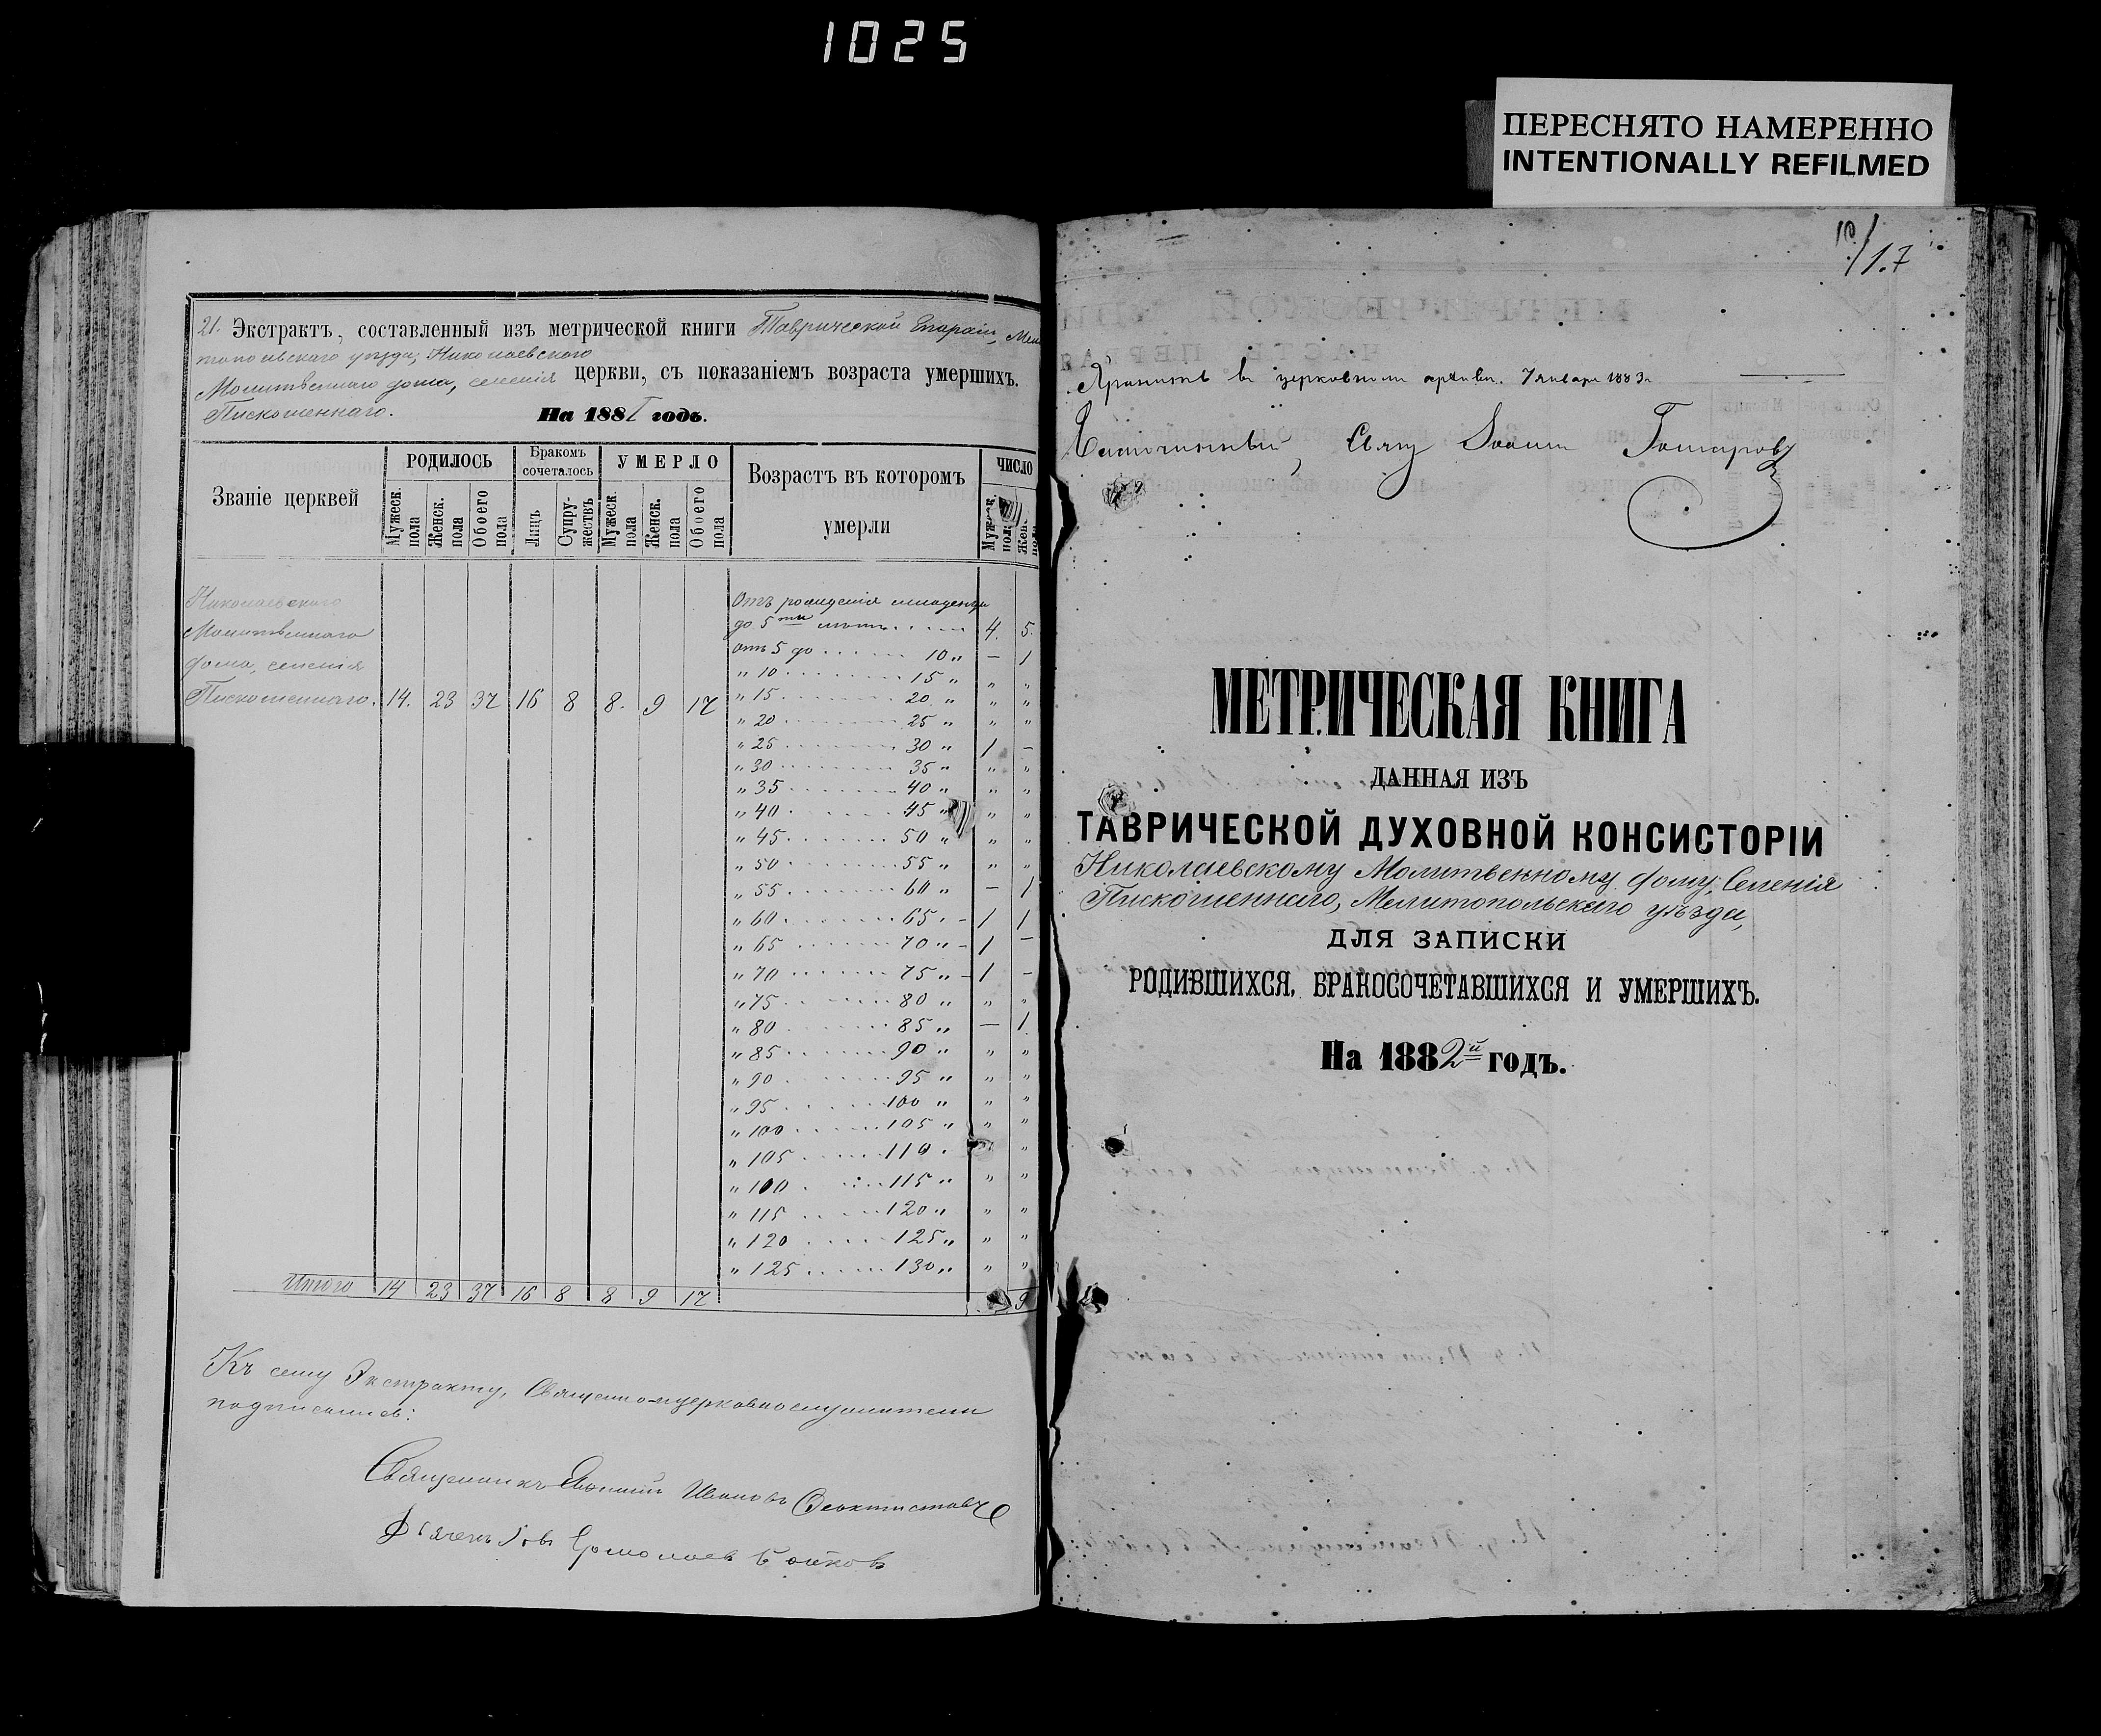 1025
ПЕРЕСНЯТО НАМЕРЕННО
INTENTIONALLY REFILMED
21. Экстрактъ, составленный изъ метрической книги Таврической Епархіи, Мели
топольскаго уѣзда, Николаевского
Молитвеннаго дома, селенія церкви, съ показаніемъ возраста умершихъ.
Пискошеннаго. На 1881 годъ.
Званіе церквей
РОДИЛОСЬ
Мужеск. пола
Женск. пола
Обоего пола
Бракомъ сочеталось
Лицъ
Супружествъ
УМЕРЛО
Мужеск. пола
Женск. пола
Обоего пола
Возрастъ въ которомъ умерли
ЧИСЛО
Мужеск. пола
Женск. пола
Николаевского
Молитвеннаго
дома, селенія
Пискошеннаго. 14. 23 37 16 8 8. 9 17
Отъ рожденія младенца
до 5ти лѣтъ 4. 5.
отъ 5 до 10 „ — 1
„ 10 15 „ „ „
„ 15 20 „ „ „
„ 20 25 „ „ „
„ 25 30 „ 1 –
„ 30 35 „ „ „
„ 35 40 „ „ „
„ 40 45 „ „ „
„ 45 50 „ „ „
„ 50 55 „ „ „
„ 55 60 „ — 1
„ 60 65 „ 1 1
„ 65 70 „ 1 –
„ 70 75 „ 1 –
„ 75 80 „ „ „
„ 80 85 „ — 1.
„ 85 90 „ „ „
„ 90 95 „ „ „
„ 95 100 „ „ „
„ 100 105 „ „ „
„ 105 110 „
„ 100 115 „ „ „
„ 115 120 „ „ „
„ 120 125 „ „ „
„ 125 130 „ „ „
Итого 14 23 37 16 8 8 9 17 9
Къ сему Экстракту, Священно-церковнослужители
подписались:
Священникъ Ивановъ Феоктистовъ
Ермолаев
17
Хранить въ церковномъ архивѣ. 7 января 1883 г.
МЕТРИЧЕСКАЯ КНИГА
ДАННАЯ ИЗЪ
ТАВРИЧЕСКОЙ ДУХОВНОЙ КОНСИСТОРІИ
Николаевскому Молитвенному дому, Селенія
Пискошеннаго, Мелитопольскаго уѣзда,
ДЛЯ ЗАПИСКИ
РОДИВШИХСЯ, БРАКОСОЧЕТАВШИХСЯ И УМЕРШИХЪ.
На 1882й годъ.